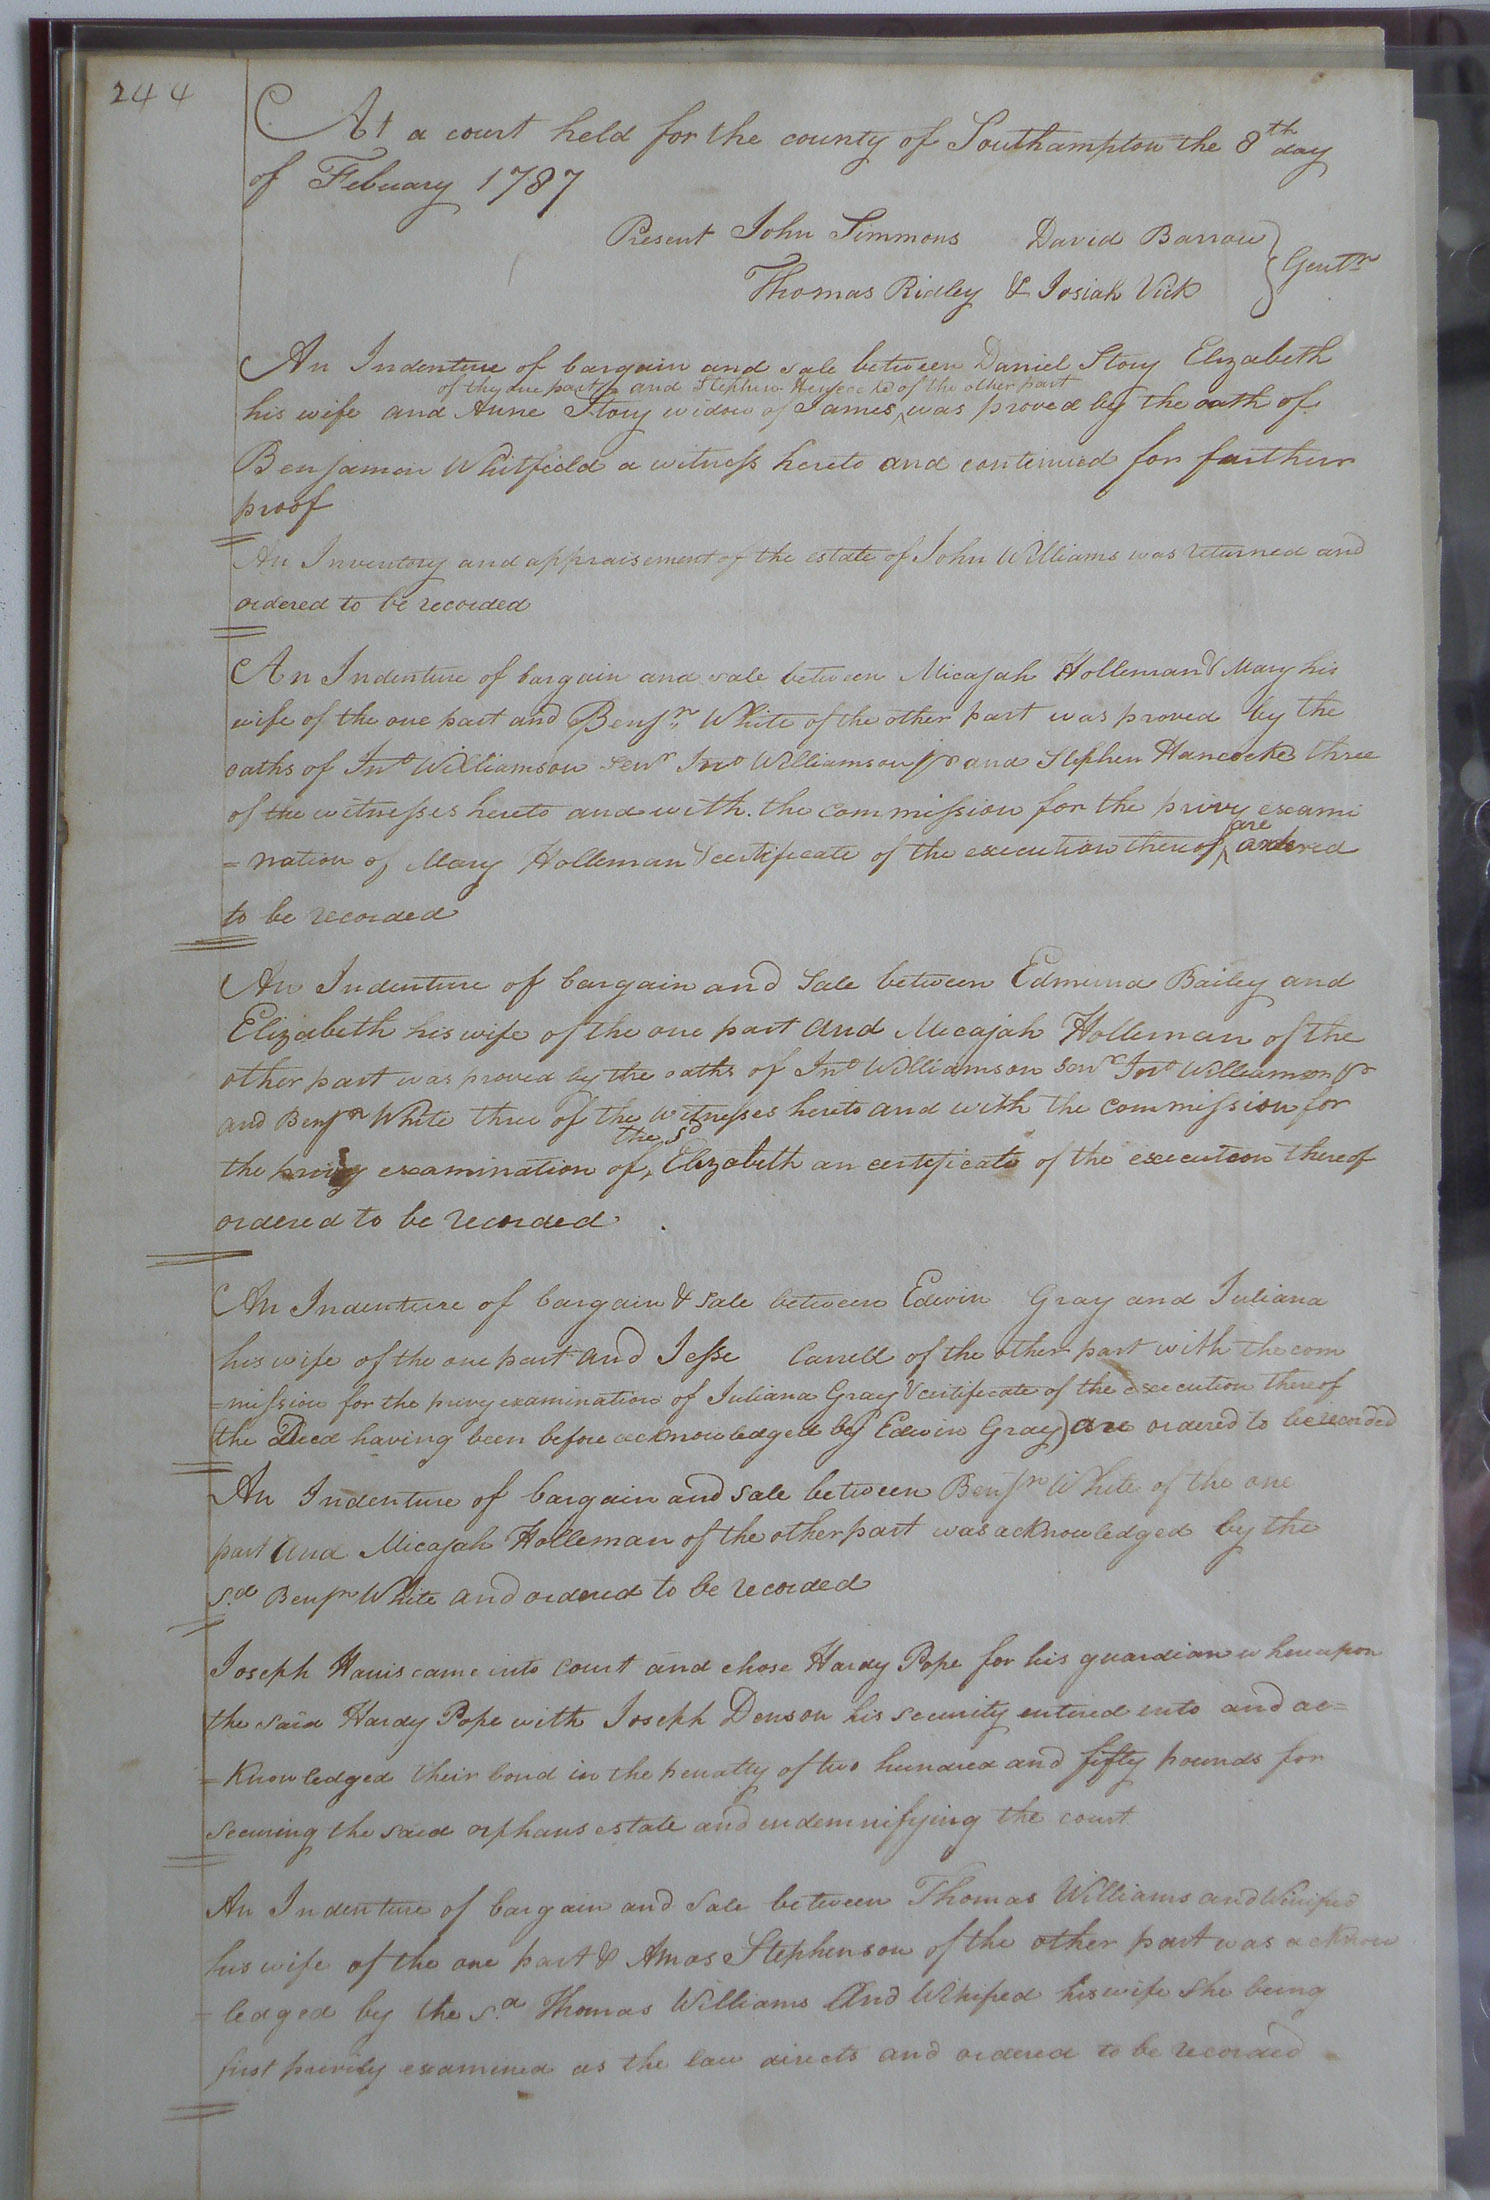 244
At a court held for the county of Southampton the 8th day
of Febuary 1787
Present John Simmons David Barrow
Thomas Ridley & Josiah Vick Gentn
An Indenture of bargain and sale between Daniel Story Elizabeth
of the one part and Stephen of the other part
his wife and Anne Story widow of James was proved by the oath of
Benjamin Whitfield a witness hereto and continued for farther
proof
An Inventory and appraisement of the estate of John Williams was returned and
ordered to be recorded
An Indenture of bargain and sale between Micajah Holleman & Mary his
wife of the one part and Benjn White of the other part was proved by the
oaths of Jno Williamson Senr Jno Williamson Jr and Stephen Hancocke three
of the witnesses hereto and with the commission for the privy exami
are
=nation of Mary Holleman & certificate of the execution thereof ordered
to be recorded
An Indenture of bargain and Sale between Edmund Bailey and
Elizabeth his wife of the one part and Micajah Holleman of the
other part was proved by the oaths of Jno Williamson Senr Jno Williamson Jr
and Benjn White three of the witnesses hereto and with the commission for
the sd
the privy examination of Elizabeth an certificate of the execution thereof
ordered to be recorded
An Indenture of bargain & sale between Edwin Gray and Juliana
his wife of the one part and Jesse Carrell of the other part with the com
=mission for the privy examination of Juliana Gray & certificate of the execution thereof
(the Deed having been before acknowledged by Edwin Gray) are ordered to be recorded
An Indenture of bargain and sale between Benjn White of the one
part and Micajah Holleman of the other part was acknowledged by the
s.d Benjn White and ordered to be recorded
Joseph Harris came into court and chose Hardy Pope for his guardian whereupon
the said Hardy Pope with Joseph Denson his security entered into and ac=
=knowledged their bond in the penalty of two hundred and fifty pounds for
securing the said orphans estate and indemnifying the court
An Indenture of bargain and Sale between Thomas Williams and Winifred
his wife of the one part & Amos Stephenson of the other part was acknow
=ledged by the s.d Thomas Williams and Winifred his wife She being
first privily examined as the law directs and ordered to be recorded